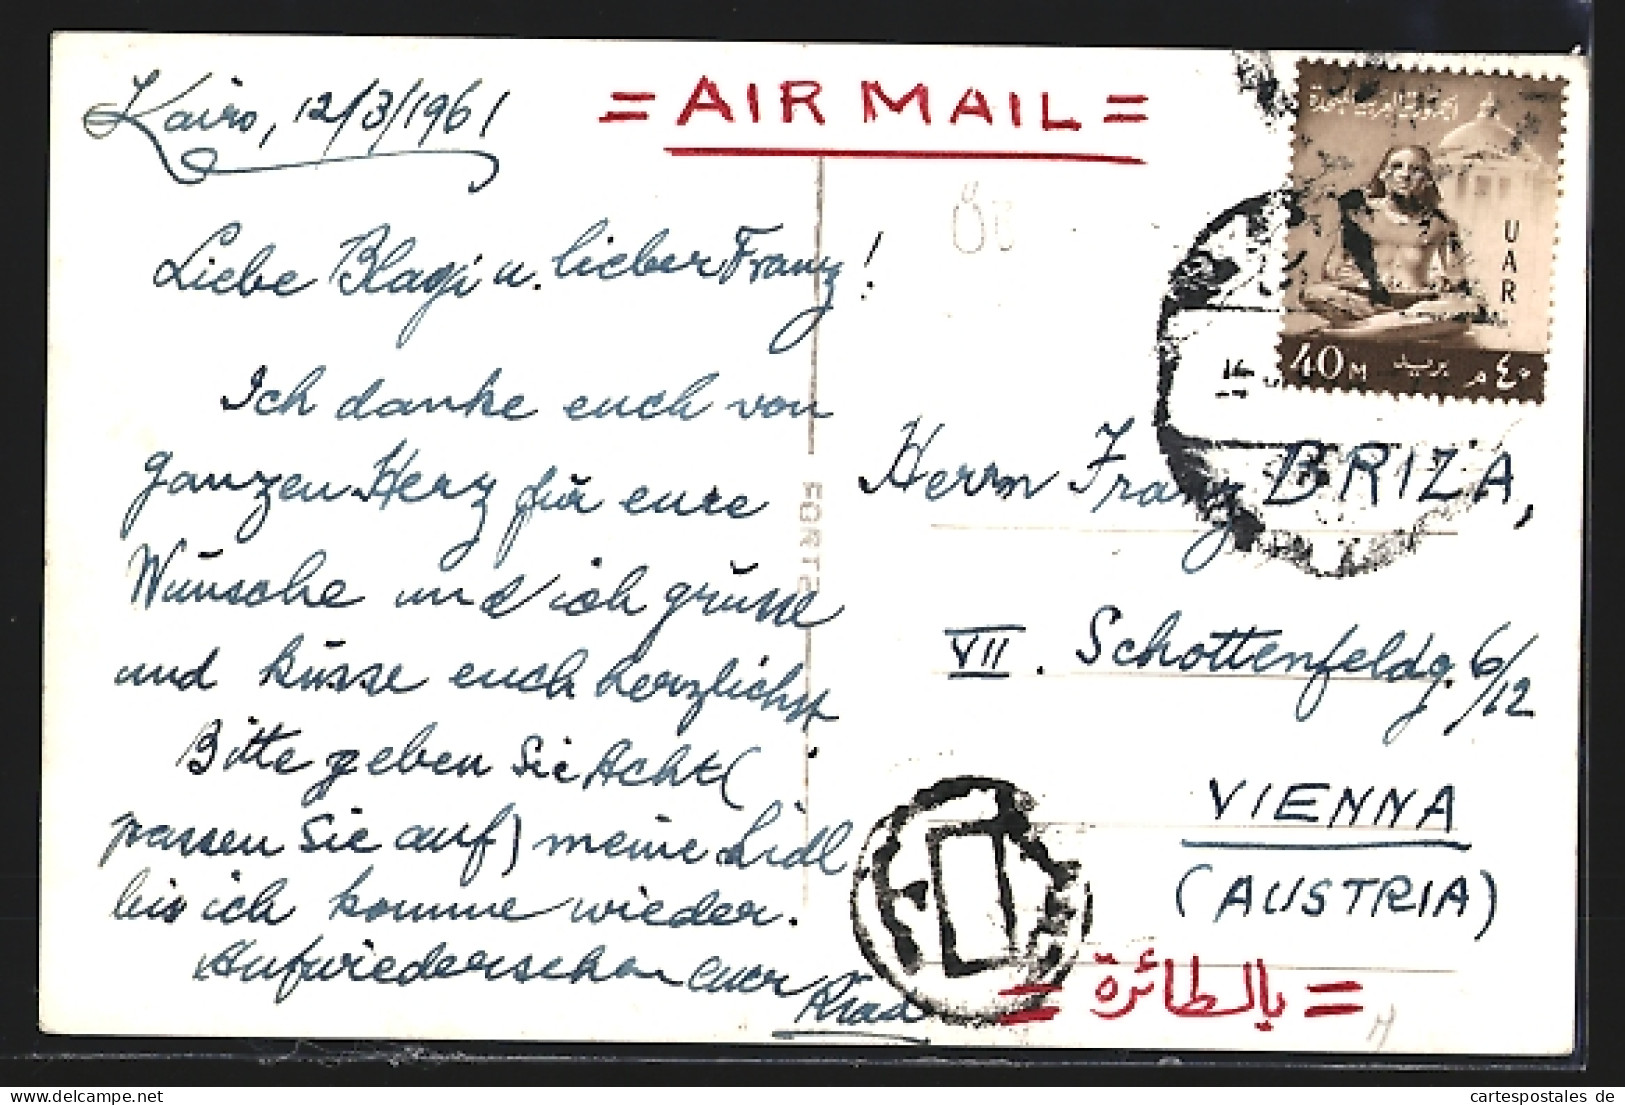 Kairo, 12/3/1961
= AIR MAIL =
Liebe Blagi u. lieber Franz!
Ich danke euch von
ganzen Herz für eure
Wünsche und ich grüsse
und küsse euch herzlichst.
Bitte geben Sie Acht (
passen Sie auf) meine Lidl
bis ich komme wieder.
Aufwiedersehen euer
UAR
40 M
بريد
٤٠ م
FORTS
Herrn Franz BRIZA,
VII. Schottenfeldg. 6/12
VIENNA
(AUSTRIA)
= بالطائرة =
cartespostales de